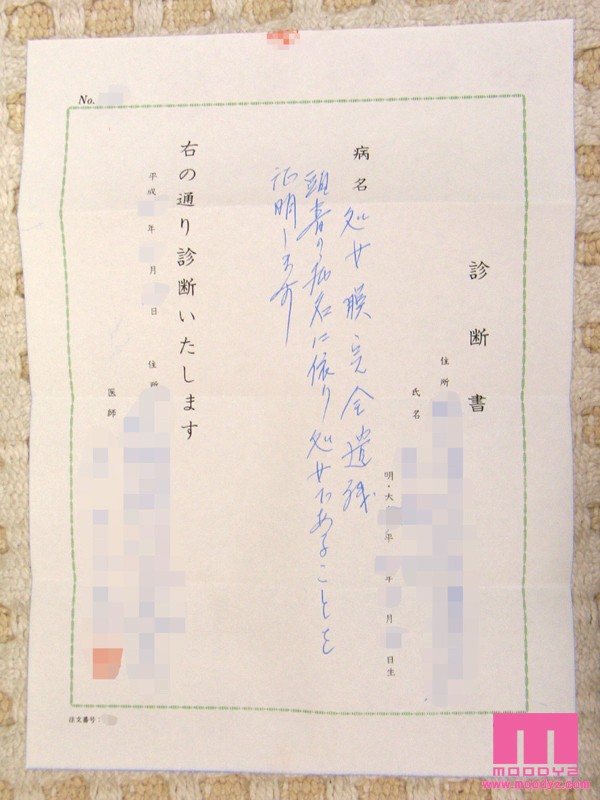 診断書
住所
氏名
明・大 平 年 月 日生
病名 処女膜完全遺残
頭書の病名に依り処女であることを
証明します
右の通り診断いたします
平成 年 月 日
住所
医師
No.
注文番号：
MOODYZ
www.moodyz.com